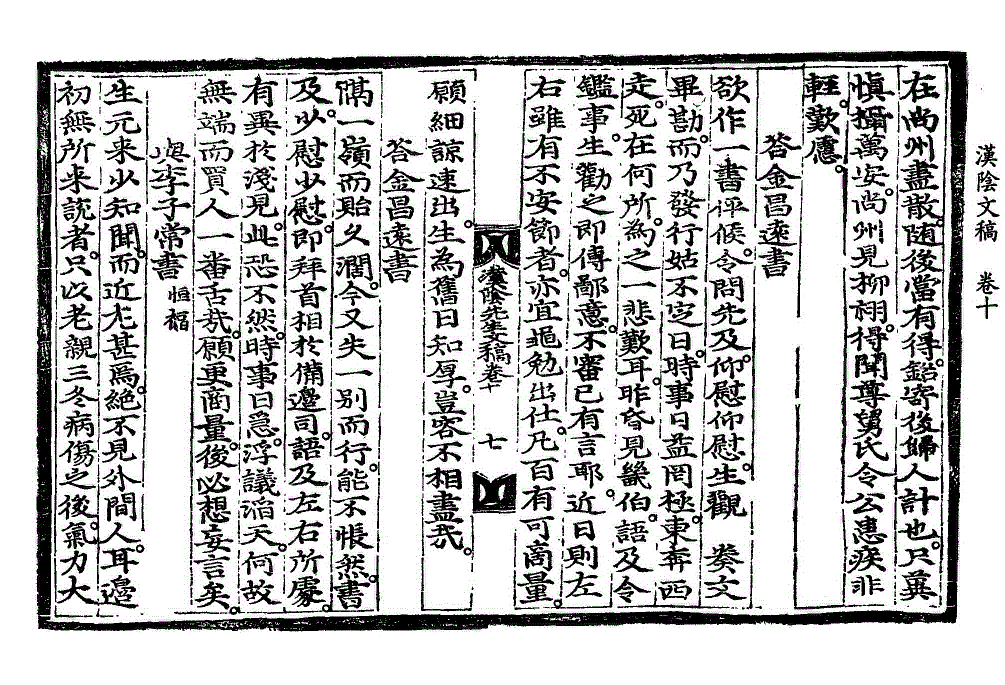 漢陰文稿 卷十
在尙州盡散。隨後當有得。鋁寄後歸人計也。只冀
愼攝萬安。尙州見柳栩。得聞尊舅氏令公患疾非
輕。歎慮。
答金昌遠書
欲作一書伻候。令問先及。仰慰仰慰。生觀 奏文
畢勘。而乃發行。姑不定日。時事日益罔極。東奔西
走。死在何所。爲之一悲歎耳。昨昏見畿伯。語及令
鑑事。生勸之卽傳鄙意。不審已有言耶。近日則左
右雖有不安節者。亦宜黽勉出仕。凡百有可商量。
漢陰先生文稿卷十 七
願細諒速出。生爲舊日知厚。豈容不相盡哉。
答金昌遠書
隔一嶺而貽久濶。今又失一別而行。能不悵然。書
及。少慰少慰。卽拜首相於備邊司。語及左右所處。
有異於淺見。此恐不然。時事日急。浮議滔天。何故
無端而買人一番舌哉。願更商量。後必想妄言矣。
與李子常書 恒福
生元來少知聞。而近尤甚焉。絶不見外間人耳。邊
初無所來說者。只以老親三冬病傷之後。氣力大